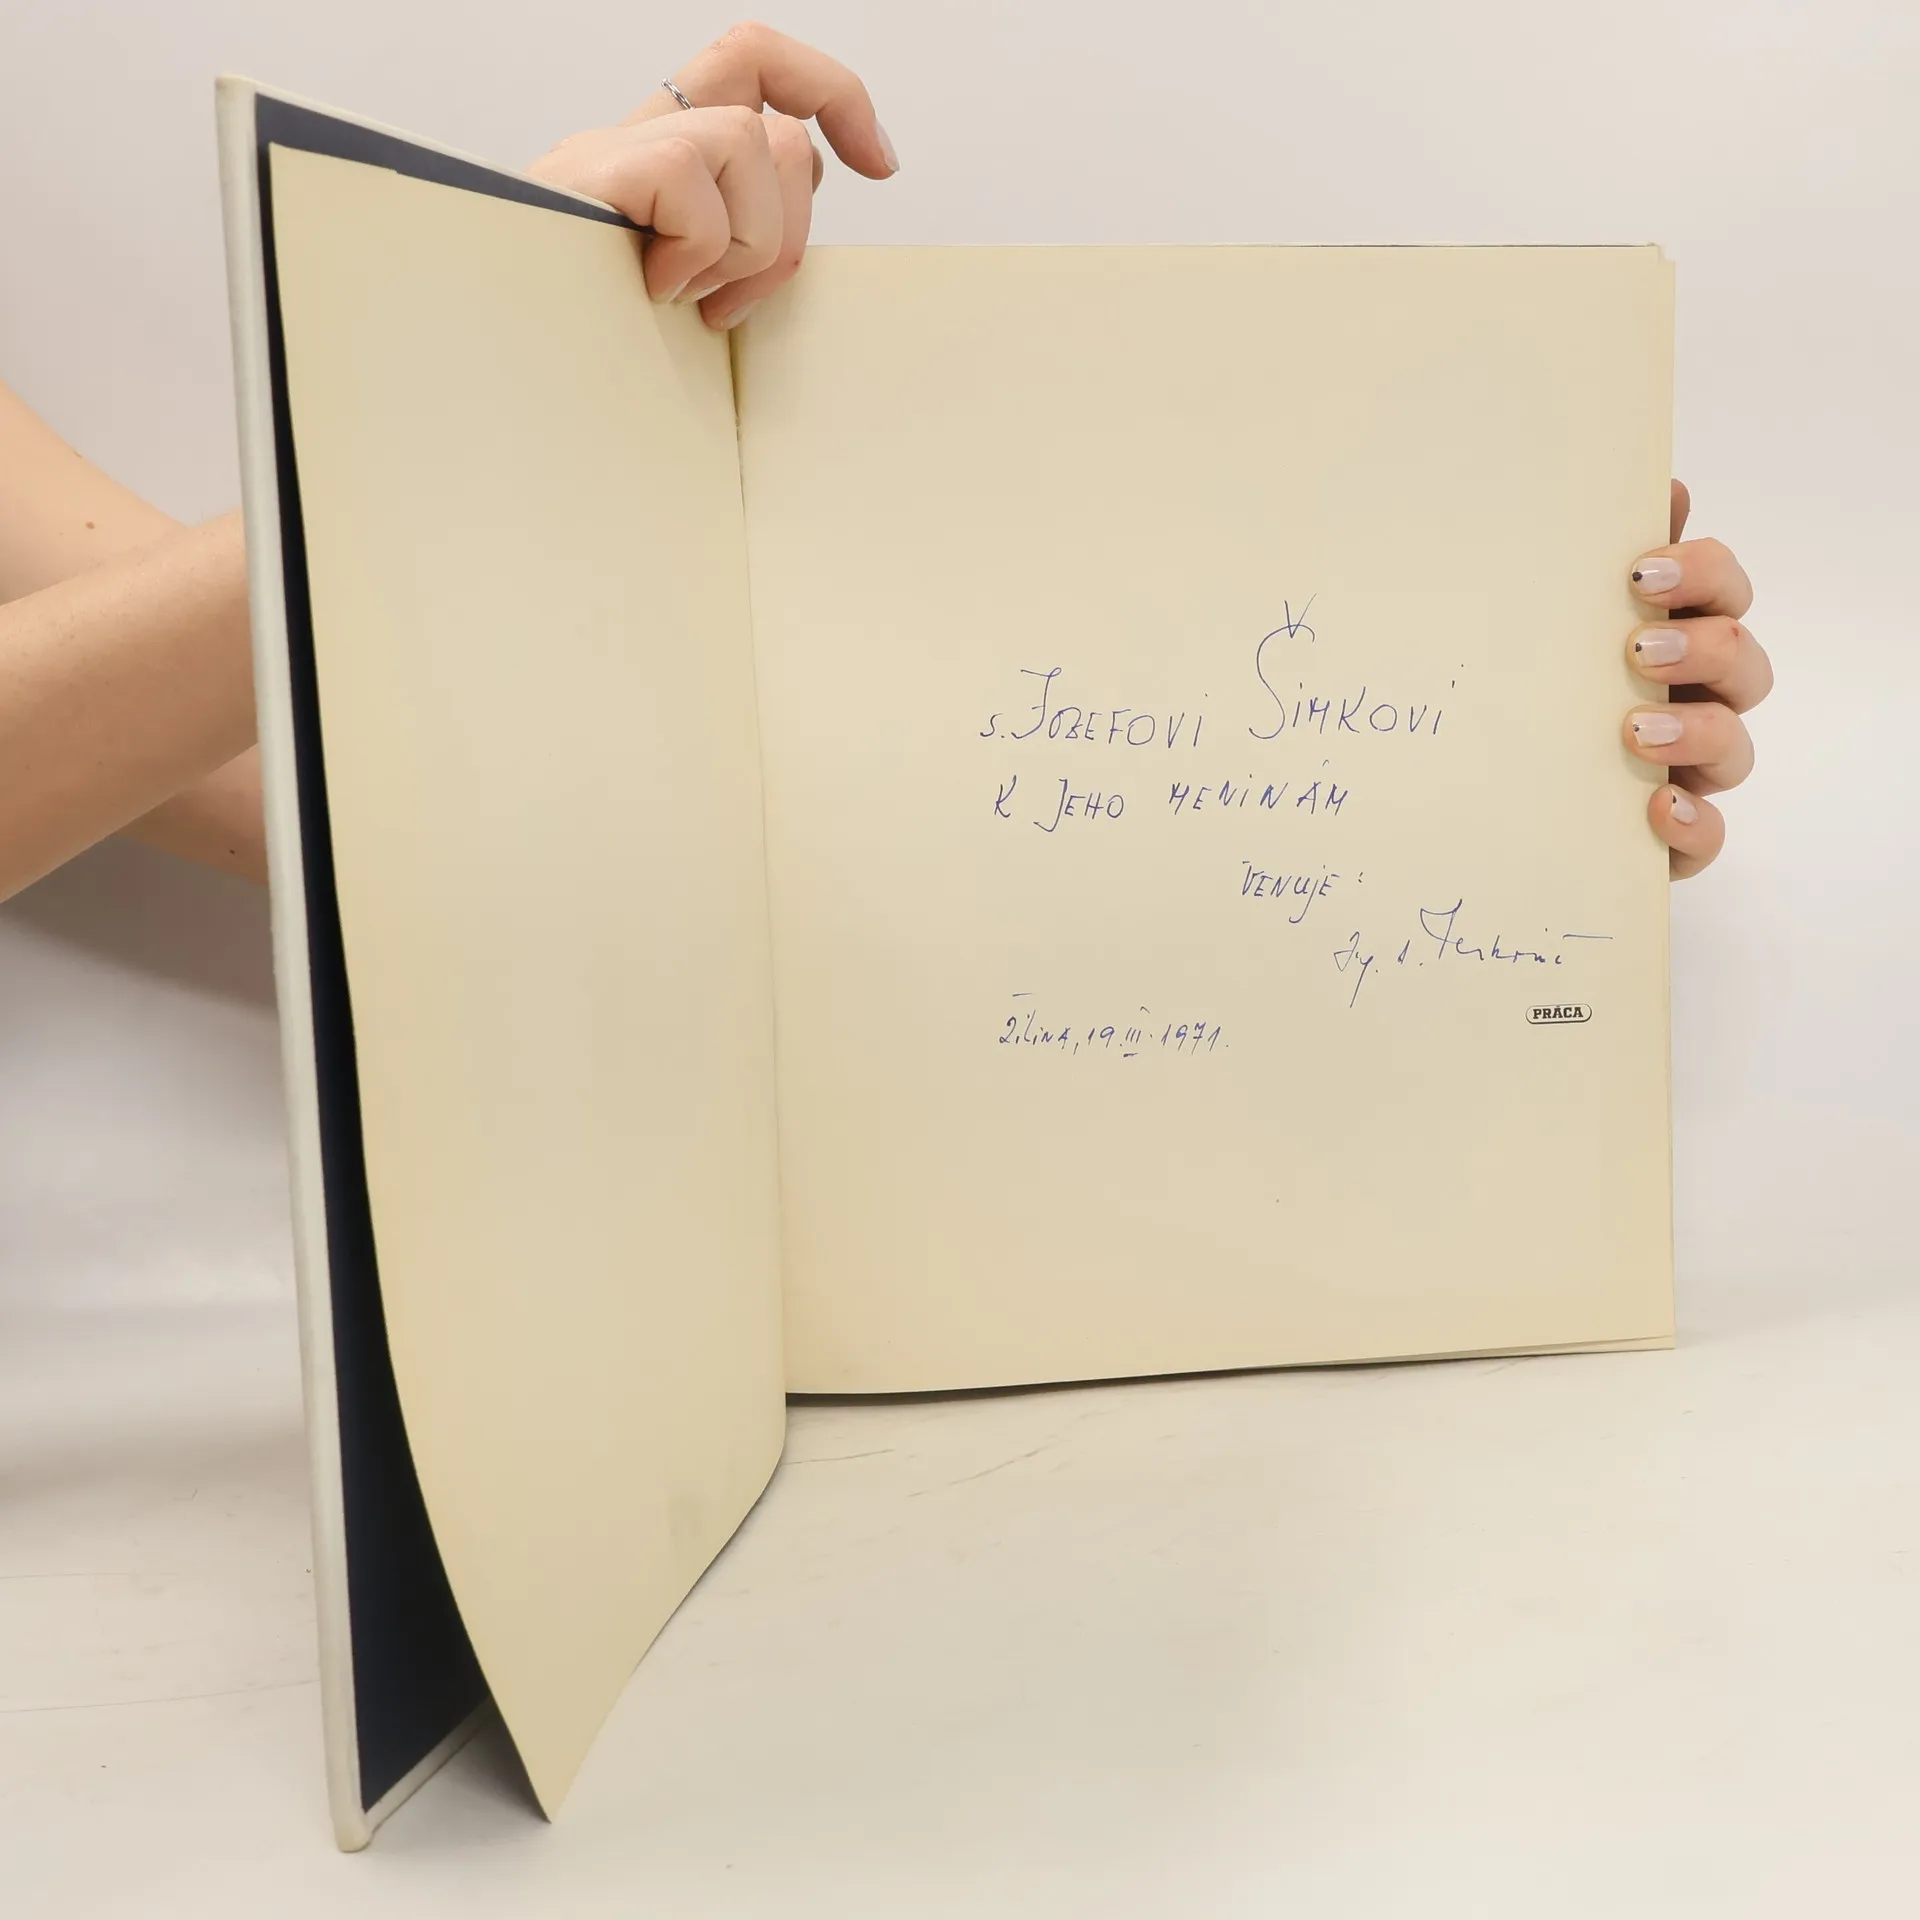 s. JOZEFOVI ŠIMKOVI
K JEHO MENINÁM
VENUJE:
Ing. A.
PRÁCA
Žilina, 19. III. 1971.